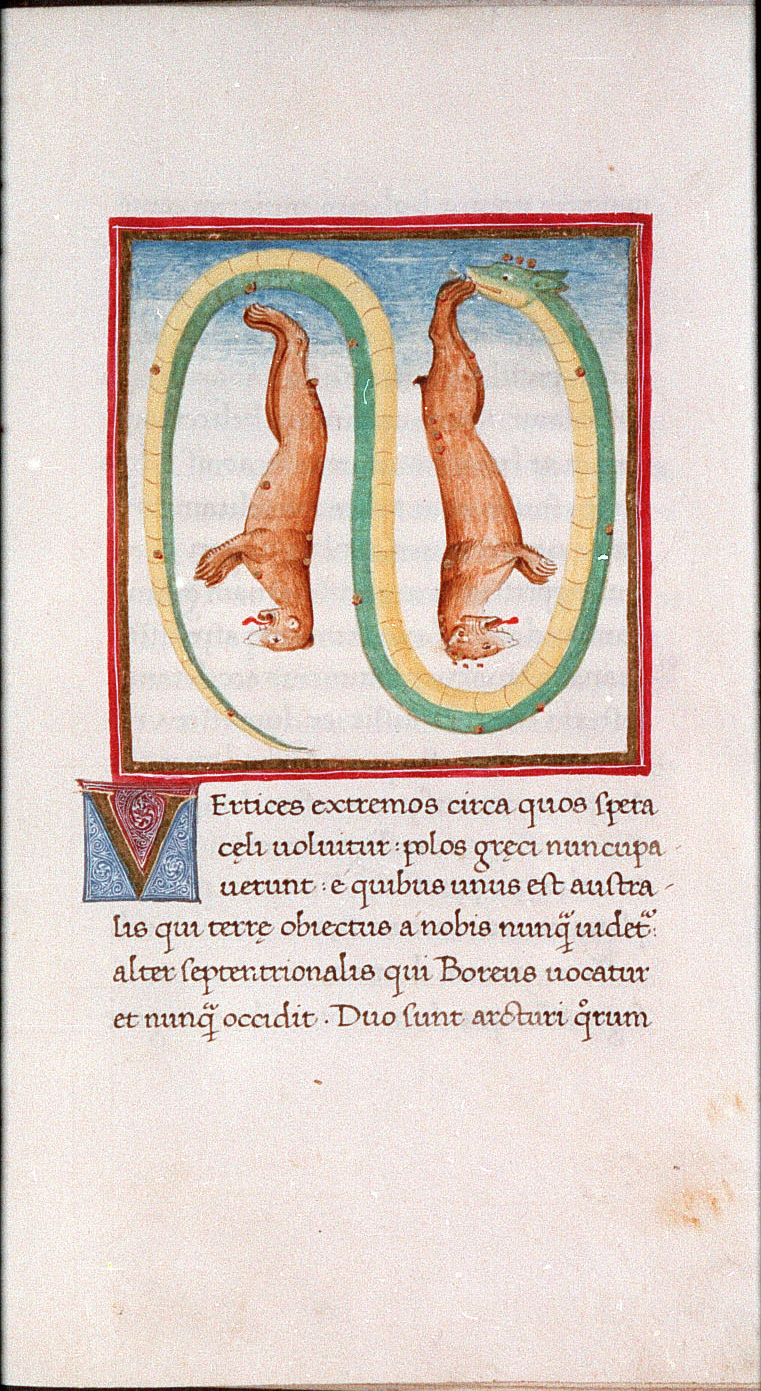 VErtices extremos circa quos ſpera
cęli uoluitur : polos gręci nuncupa
uerunt : e quibus unus eſt auſtra
lis qui terrę obiectus a nobis nunq̃ᷓ uidetᷓ:
alter ſeptentrionalis qui Boreus uocatur
et nunq̃ᷓ occidit . Duo ſunt arcturi qͦrum